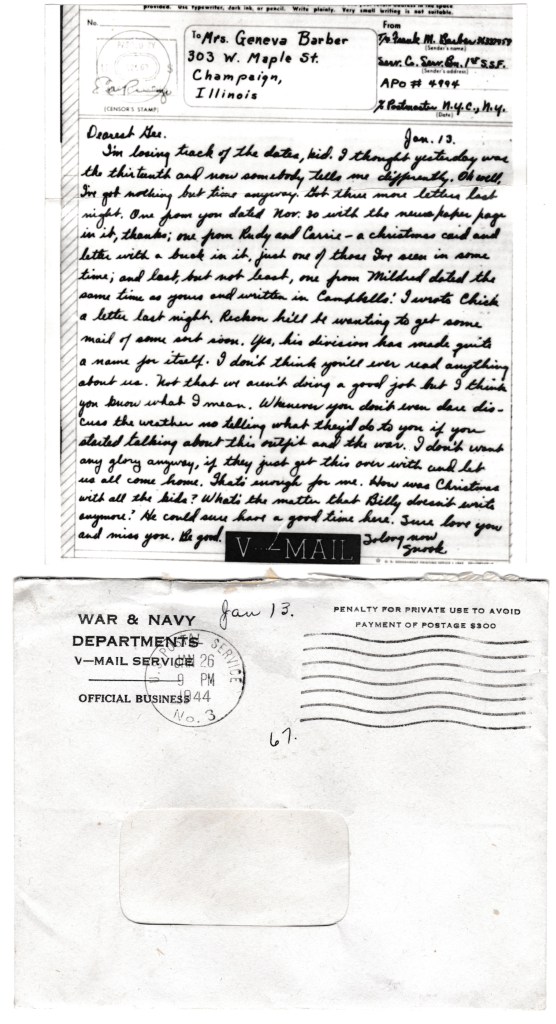 provided. Use typewriter, dark ink, or pencil. Write plainly. Very small writing is not suitable.
No.
(CENSOR'S STAMP)
To Mrs. Geneva Barber
303 W. Maple St.
Champaign,
Illinois
From
T/5 Frank M. Barber
(Sender's name)
Serv. Co. Serv. Bn. 1st S.S.F.
(Sender's address)
APO # 4994
% Postmaster N.Y.C., N.Y.
(Date)
Jan. 13.
Dearest Gee.
I'm losing track of the dates, kid. I thought yesterday was
the thirteenth and now somebody tells me differently. Oh well,
I've got nothing but time anyway. Got three more letters last
night. One from you dated Nov. 30 with the newspaper page
in it, thanks; one from Rudy and Carrie - a christmas card and
letter with a buck in it, just one of those I've seen in some
time; and last, but not least, one from Mildred dated the
same time as yours and written in Campbells! I wrote Chick
a letter last night. Reckon he'll be wanting to get some
mail of some sort soon. Yes, his division has made quite
a name for itself. I don't think you'll ever read anything
about us. Not that we aren't doing a good job but I think
you know what I mean. Whenever you don't even dare dis-
cuss the weather no telling what they'd do to you if you
started talking about this outfit and the war. I don't want
any glory anyway, if they just get this over with and let
us all come home. That's enough for me. How was Christmas
with all the kids? What's the matter that Billy doesn't write
anymore? He could sure have a good time here. Sure love you
and miss you. Be good.
V-MAIL
So long now
Snook
Jan 13.
WAR & NAVY
DEPARTMENTS
V—MAIL SERVICE
OFFICIAL BUSINESS
U.S. POSTAL SERVICE
JAN 26
9 PM
1944
No. 3
PENALTY FOR PRIVATE USE TO AVOID
PAYMENT OF POSTAGE $300
67.